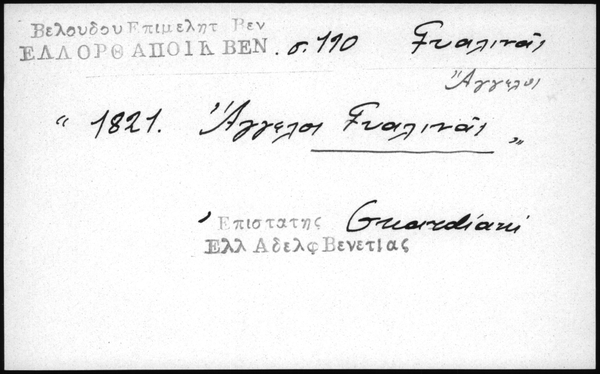 Βελουδου Επιμελητ Βεν
ΕΛΛ ΟΡΘ ΑΠΟΙΚ ΒΕΝ. σ. 190 Γυαλινᾶς
Ἄγγελος
“ 1821. Ἄγγελος Γυαλινᾶς „
Επιστατης Guardiani
Ελλ Αδελφ Βενετιας